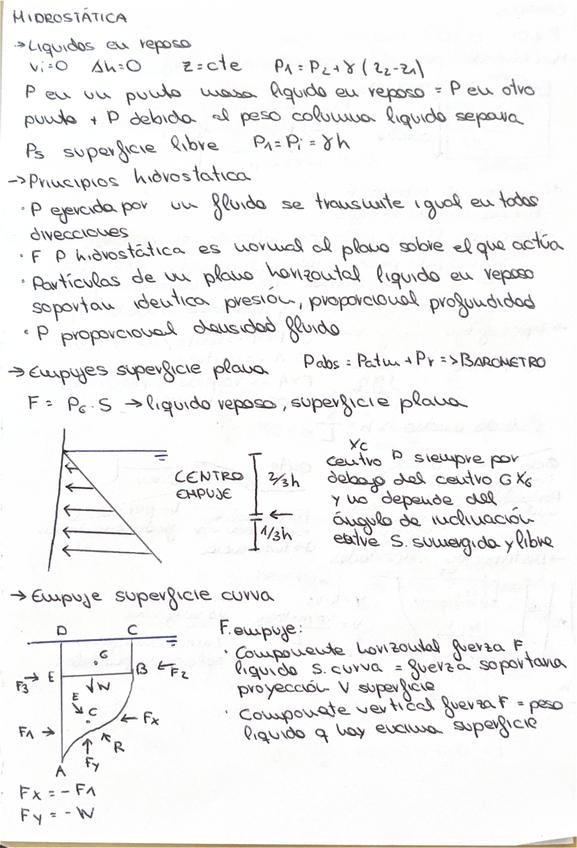 HIDROSTÁTICA
→ Líquidos en reposo
Vi=0 Δh=0 z=cte P1=P2+γ(z2-z1)
P en un punto masa líquido en reposo = P en otro
punto + P debida al peso columna líquido separa
Ps superficie libre P1=Pi=γh
→ Principios hidrostatica
· P ejercida por un fluido se transmite igual en todas
direcciones
· F P hidrostática es normal al plano sobre el que actúa
· Partículas de un plano horizontal líquido en reposo
soportan identica presión, proporcional profundidad
· P proporcional densidad fluido
→ Empujes superficie plana Pabs = Patm + Pr => BAROMETRO
F = PG · S → líquido reposo, superficie plana
CENTRO
EMPUJE
2/3h
1/3h
Xc
centro P siempre por
debajo del centro G XG
y no depende del
ángulo de inclinación
entre S. sumergida y libre
→ Empuje superficie curva
D C
G
F3 → E B ← F2
W
E
C
F1 → ← Fx
R
Fy
A
Fx = -F1
Fy = -W
F. empuje:
· Componente horizontal fuerza F
líquido S. curva = fuerza soportaria
proyección V superficie
· Componete vertical fuerza F = peso
líquido q hay encima superficie